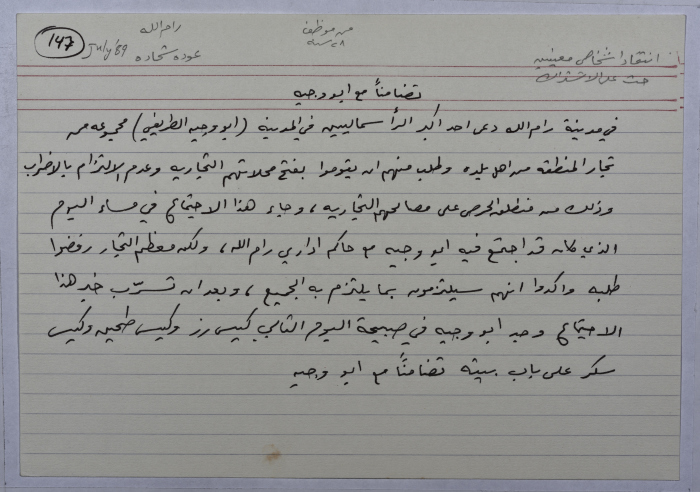 147
July/89
رام الله
عوده شحاده
من موظف
٢٨ سنه
انتقاد اشخاص معينين
حث على الاشتراك
تضامناً مع ابو وجيه
في مدينة رام الله دعى احد اكبر الرأسماليين في المدينة (ابو وجيه الطريفي) مجموعه من
تجار المنطقه من اهل بلده وطلب منهم ان يقوموا بفتح محلاتهم التجاريه وعدم الالتزام بالاضراب
وذلك من منطلق الحرص على مصالحهم التجاريه، وجاء هذا الاجتماع في مساء اليوم
الذي كان قد اجتمع فيه ابو وجيه مع حاكم اداري رام الله، ولكن معظم التجار رفضوا
طلبه واكدوا انهم سيلتزمون بما يلتزم به الجميع، وبعد ان تسرّب خبر هذا
الاجتماع وجد ابو وجيه في صبيحة اليوم التالي كيس رز وكيس طحين وكيس
سكر على باب بيته تضامناً مع ابو وجيه